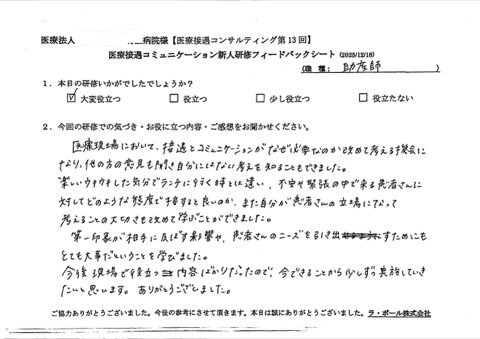 医療法人 病院様【医療接遇コンサルティング第13回】
医療接遇コミュニケーション新人研修フィードバックシート（2025/12/18）
（職種：助産師）
1．本日の研修いかがでしたでしょうか？
☑ 大変役立つ □ 役立つ □ 少し役立つ □ 役立たない
2．今回の研修での気づき・お役に立つ内容・ご感想をお聞かせください。
医療現場において、接遇とコミュニケーションがなぜ必要なのか改めて考える機会に
なり、他の方の意見も聞き自分にはない考えを知ることもできました。
楽しいウキウキした気分でランチに行く時とは違い、不安や緊張の中で来る患者さんに
対してどのような態度で接すると良いのか、また自分が患者さんの立場になって
考えることの大切さを改めて学ぶことができました。
第一印象が相手に及ぼす影響や、患者さんのニーズを引き出すためにも
とても大事だということを学びました。
今後現場で役立つ内容ばかりだったので、今できることから少しずつ実施していき
たいと思います。ありがとうございました。
ご協力ありがとうございました。今後の参考にさせて頂きます。本日は誠にありがとうございました。ラ・ポール株式会社